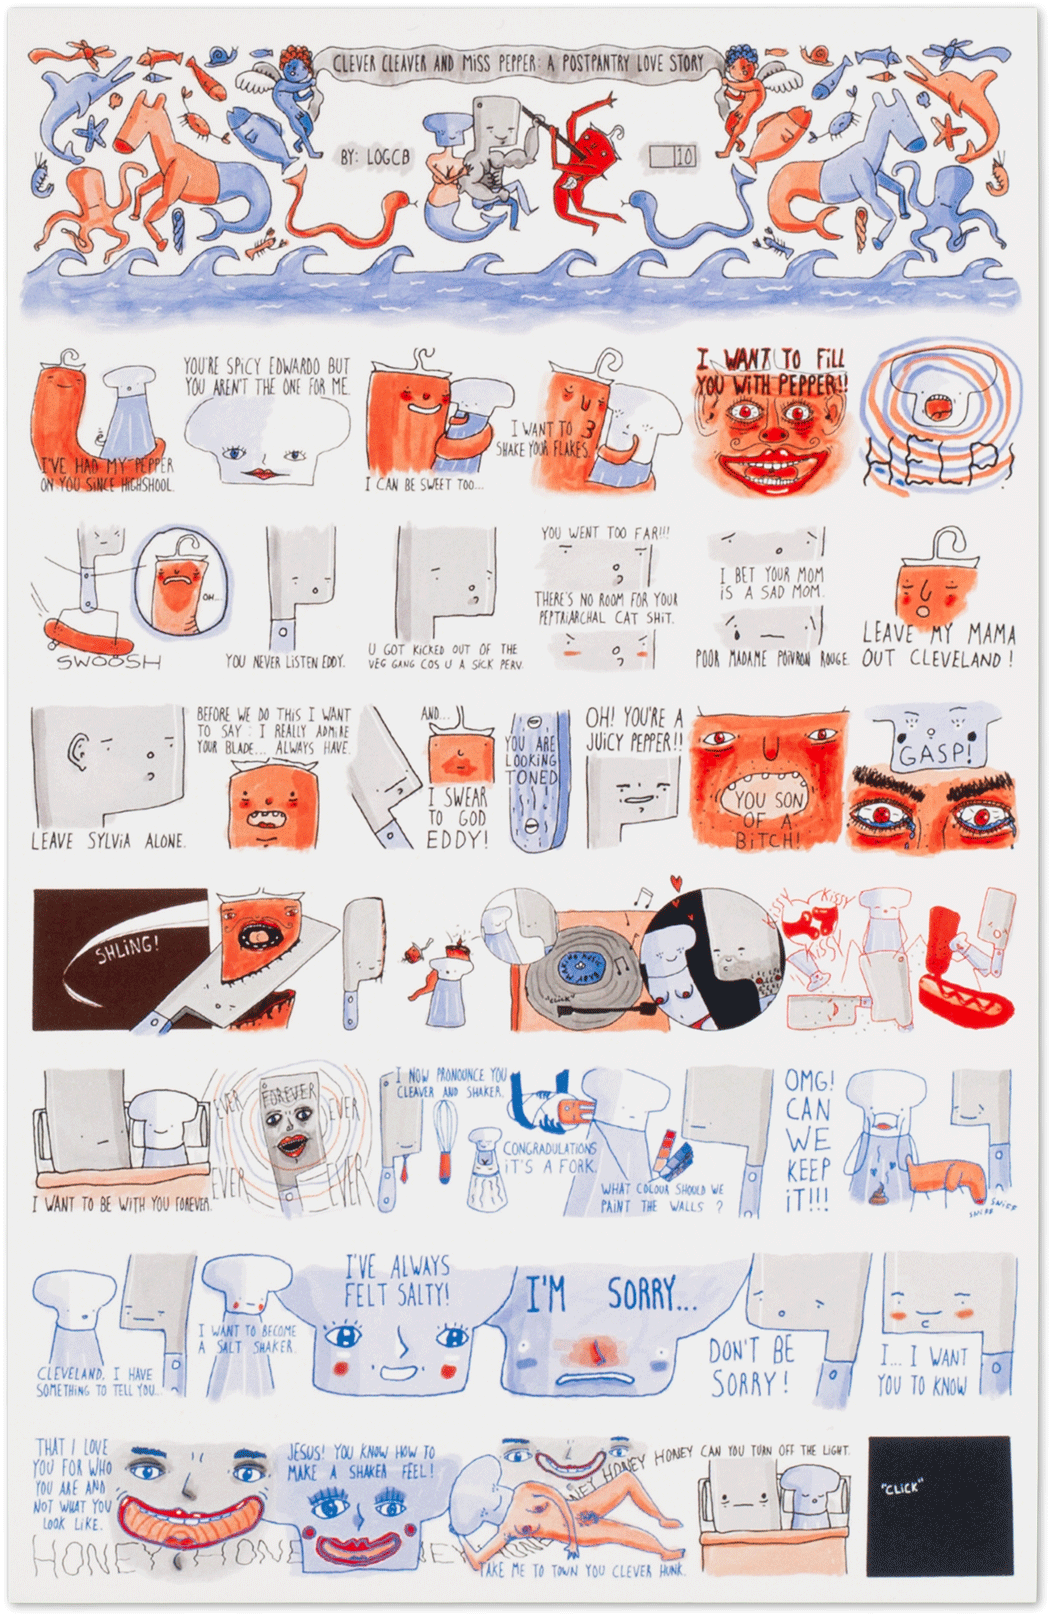 CLEVER CLEAVER AND MiSS PEPPER: A POSTPANTRY LOVE STORY
BY: LOGCB
10
I'VE HAD MY PEPPER
ON YOU SINCE HIGHSHOOL.
YOU'RE SPICY EDWARDO BUT
YOU AREN'T THE ONE FOR ME.
I CAN BE SWEET TOO...
I WANT TO
SHAKE YOUR FLAKES.
I WANT TO FiLL
YOU WiTH PEPPER!!
HELP
SWOOSH
OH...
YOU NEVER LiSTEN EDDY.
U GOT KICKED OUT OF THE
VEG GANG COS U A SiCK PERV.
YOU WENT TOO FAR!!!
THERE'S NO ROOM FOR YOUR
PEPTRIARCHAL CAT SHiT.
I BET YOUR MOM
iS A SAD MOM.
POOR MADAME POiVRON ROUGE.
LEAVE MY MAMA
OUT CLEVELAND!
LEAVE SYLViA ALONE.
BEFORE WE DO THIS I WANT
TO SAY: I REALLY ADMIRE
YOUR BLADE... ALWAYS HAVE.
AND...
I SWEAR
TO GOD
EDDY!
YOU ARE
LOOKING
TONED
OH! YOU'RE A
JUICY PEPPER!!
YOU SON
OF A
BiTCH!
GASP!
SHLiNG!
BABY MAKING MUSIC
"CLiCK"
KiSSY
KiSSY
KiSSY
I WANT TO BE WITH YOU FOREVER.
FOREVER
EVER
EVER
EVER
EVER
I NOW PRONOUNCE YOU
CLEAVER AND SHAKER.
CONGRADULATIONS
iT'S A FORK.
WHAT COLOUR SHOULD WE
PAINT THE WALLS ?
OMG!
CAN
WE
KEEP
iT!!!
SNiFF SNiFF
CLEVELAND, I HAVE
SOMETHING TO TELL YOU...
I WANT TO BECOME
A SALT SHAKER.
I'VE ALWAYS
FELT SALTY!
I'M SORRY...
DON'T BE
SORRY!
I... I WANT
YOU TO KNOW
THAT I LOVE
YOU FOR WHO
YOU ARE AND
NOT WHAT YOU
LOOK LIKE.
HONEY
JESUS! YOU KNOW HOW TO
MAKE A SHAKER FEEL!
TAKE ME TO TOWN YOU CLEVER HUNK.
HONEY HONEY
HONEY CAN YOU TURN OFF THE LIGHT.
"CLICK"